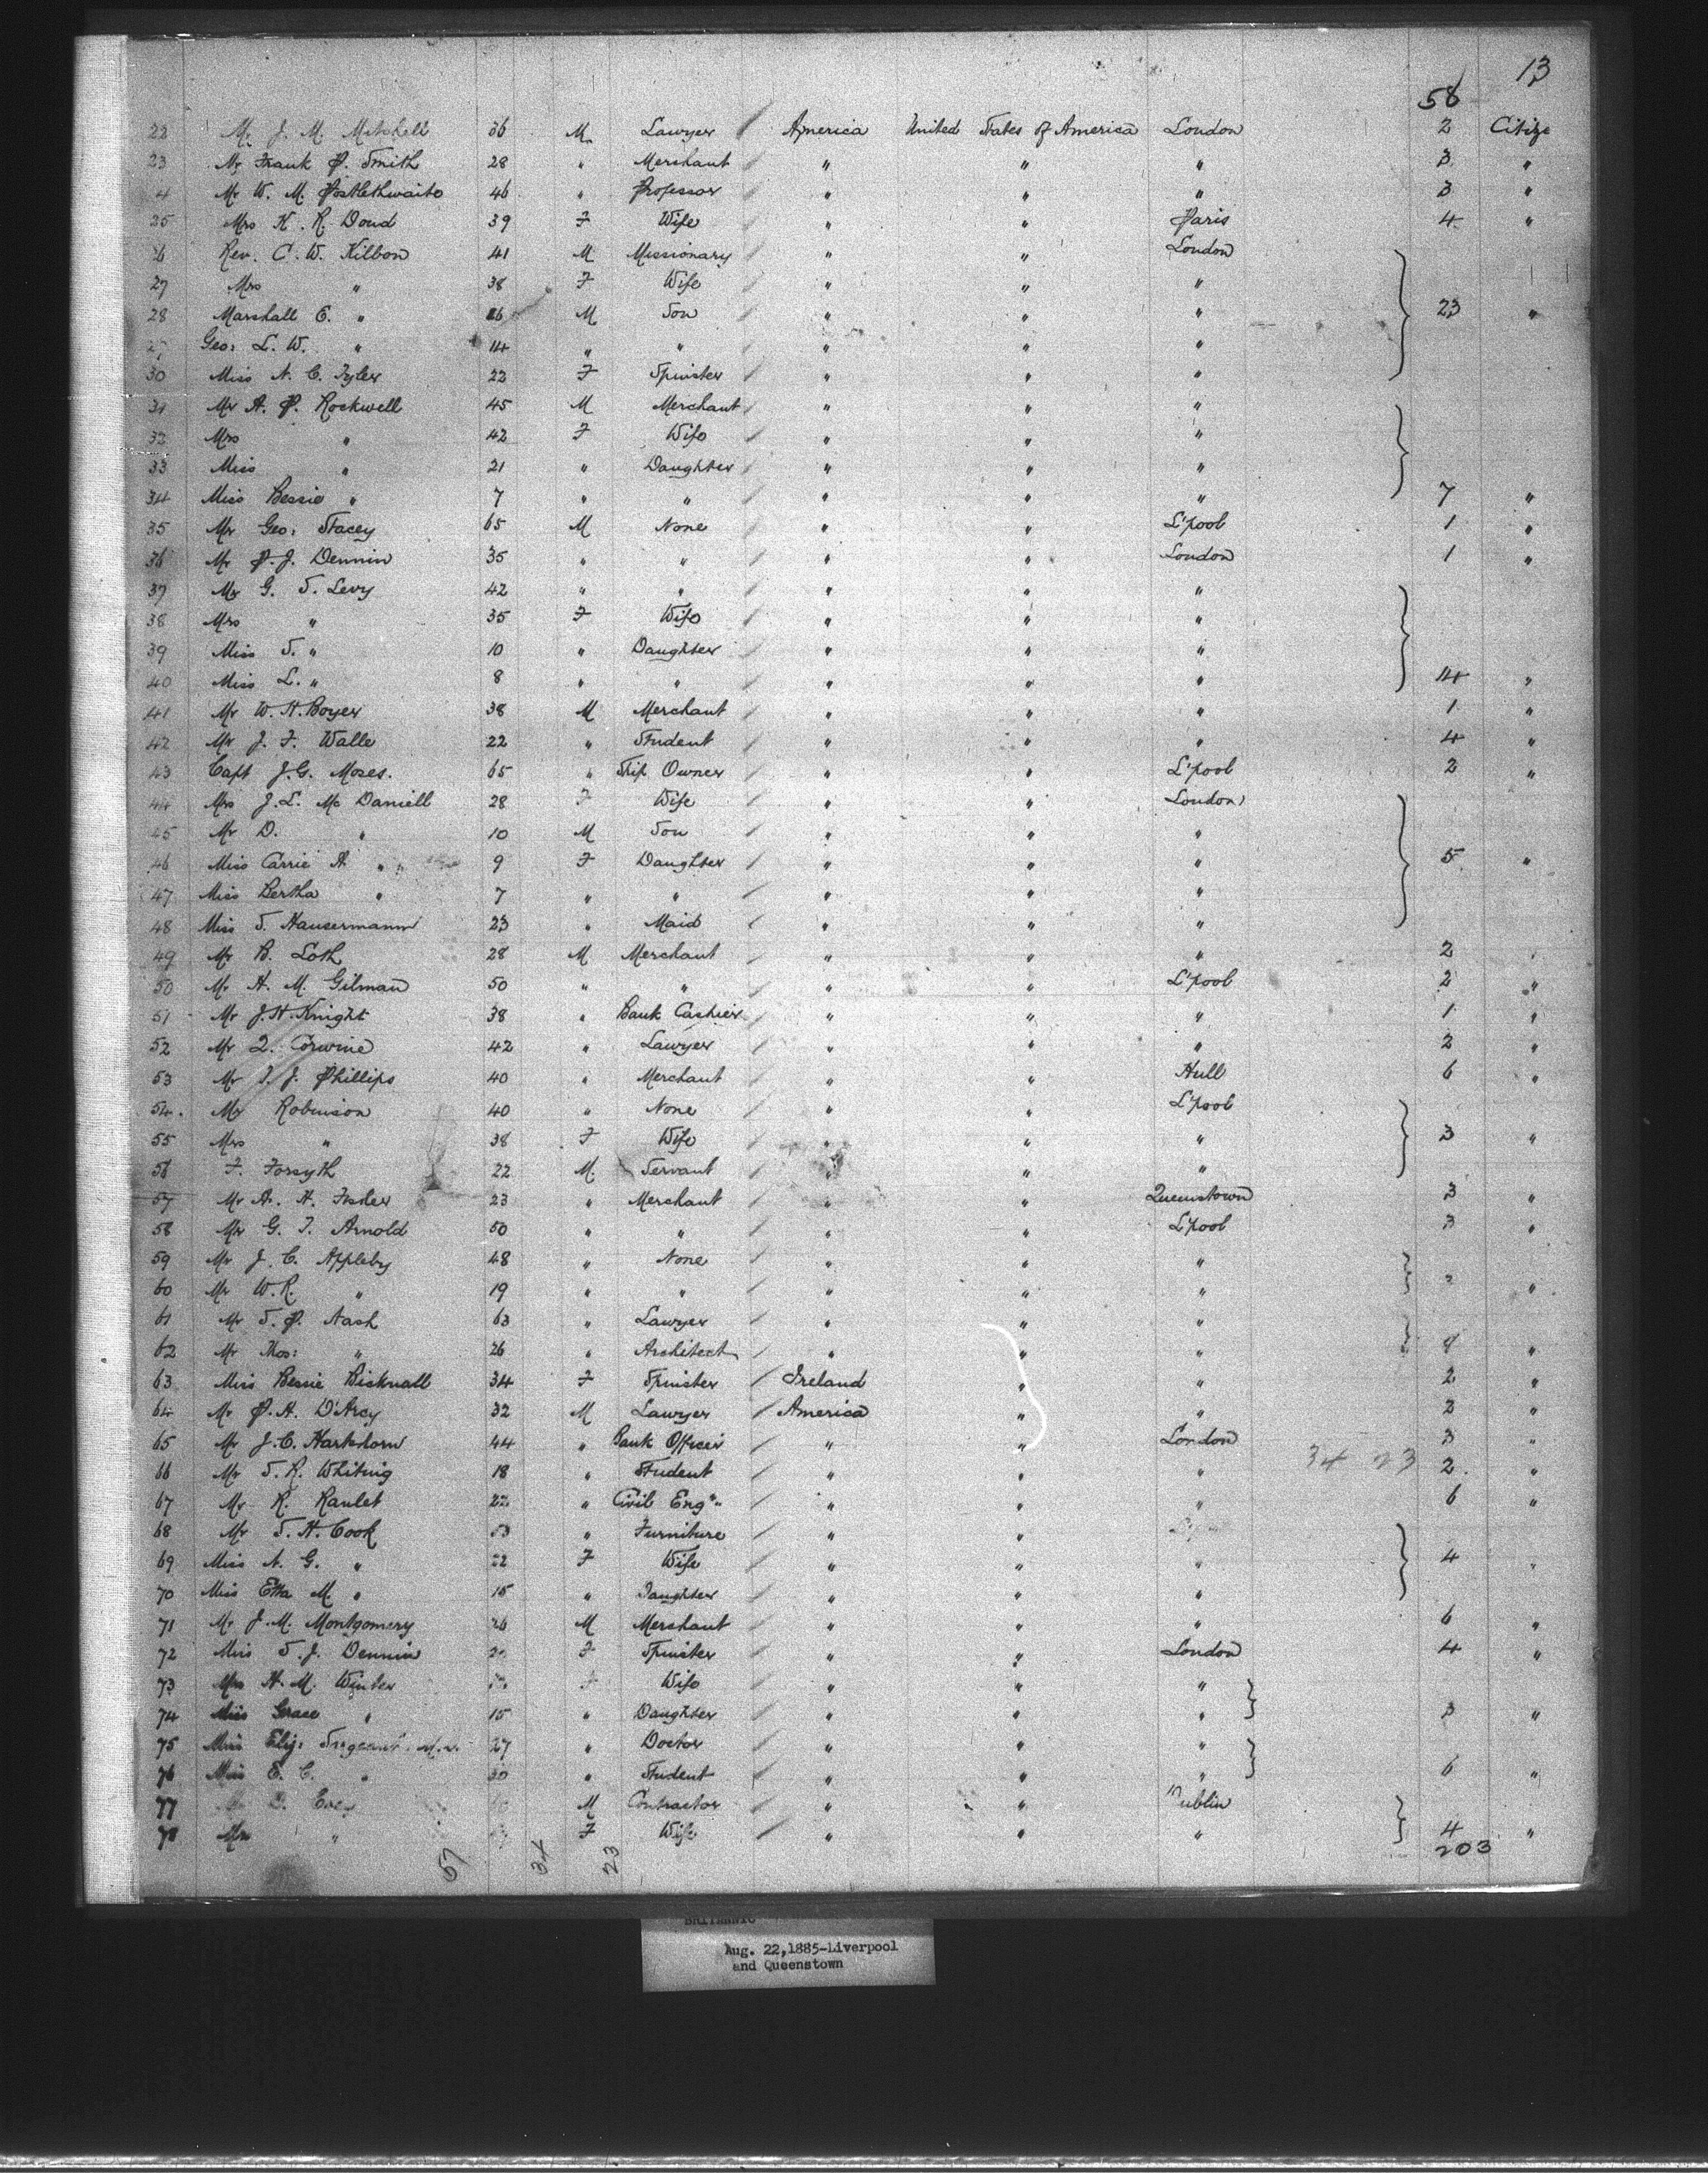 13
58
22 Mr J. M. Mitchell 36 M. Lawyer / America United States of America London 2 Citize
23 Mr Frank P. Smith 28 " Merchant / " " " 3 "
4 Mr W. M. Postlethwaite 46 " Professor / " " " 3 "
25 Mrs K. R. Doud 39 F Wife / " " Paris 4 "
26 Rev. C. W. Kilbon 41 M Missionary / " " London
27 Mrs " 38 F Wife / " " "
28 Marshall E. " 16 M Son / " " " 23 "
29 Geo: L. W. " 14 " " / " " "
30 Miss N. C. Tyler 22 F Spinster / " " "
31 Mr A. P. Rockwell 45 M Merchant / " " "
32 Mrs " 42 F Wife / " " "
33 Miss " 21 " Daughter / " " "
34 Miss Bessie " 7 " " / " " " 7 "
35 Mr Geo: Stacey 65 M None / " " L'pool 1 "
36 Mr P. J. Dennin 35 " " / " " London 1 "
37 Mr G. S. Levy 42 " " / " " "
38 Mrs " 35 F Wife / " " "
39 Miss S. " 10 " Daughter / " " "
40 Miss L. " 8 " " / " " " 14 "
41 Mr W. H. Boyer 38 M Merchant / " " " 1 "
42 Mr J. F. Walle 22 " Student / " " " 4 "
43 Capt J. G. Moses. 65 " Ship Owner / " " L'pool 2 "
44 Mrs J. L. Mc Daniell 28 F Wife / " " London
45 Mr D. " 10 M Son / " " "
46 Miss Carrie A " 9 F Daughter / " " " 5 "
47 Miss Bertha " 7 " " / " " "
48 Miss S. Hausermann 23 " Maid / " " "
49 Mr B. Loth 28 M Merchant / " " " 2 "
50 Mr H. M. Gilman 50 " " / " " L'pool 2 "
51 Mr J. H. Knight 38 " Bank Cashier / " " " 1 "
52 Mr Q. Corwine 42 " Lawyer / " " " 2 "
53 Mr J. Phillips 40 " Merchant / " " Hull 6 "
54. Mr Robinson 40 " None / " " L'pool
55 Mrs " 38 F Wife / " " " 3 "
56 F. Forsyth 22 M. Servant / " " "
57 Mr A. H. 23 " Merchant / " " Queenstown 3 "
58 Mr G. T. Arnold 50 " " / " " L'pool 3 "
59 Mr J. C. Appleby 48 " None / " " "
60 Mr W. R. " 19 " " / " " " "
61 Mr S. P. Nash 63 " Lawyer / " " "
62 Mr Thos: " 26 " Architect / " " " "
63 Miss Bessie Bicknall 34 F Spinster / Ireland " " 2 "
64 Mr P. H. D'Arcy 32 M Lawyer / America " " 2 "
65 Mr J. C. Hartshorn 44 " Bank Officer / " " London 3 "
66 Mr S. R. Whiting 18 " Student / " " " 34 23 2. "
67 Mr R. Ranlet 22 " Civil Engr / " " " 6 "
68 Mr S. H. Cook " Furniture / " "
69 Miss N. G. " F Wife / " " " 4 "
70 Miss Etta M. " 15 " Daughter / " " "
71 Mr J. M. Montgomery 26 M Merchant / " " " 6 "
72 Miss S. J. Dennin F Spinster / " " London 4 "
73 Mrs H. M. Winter Wife / " " "
74 Miss Grace " 15 " Daughter / " " " 3 "
75 Miss Eliz: Sargeant 27 " Doctor / " " "
76 Miss E. C. " 30 " Student / " " " 6 "
77 M Contractor / " " Dublin
78 Mrs " F Wife / " " " 4 "
57 34 23 203
BRITANNIC
Aug. 22,1885-Liverpool
and Queenstown